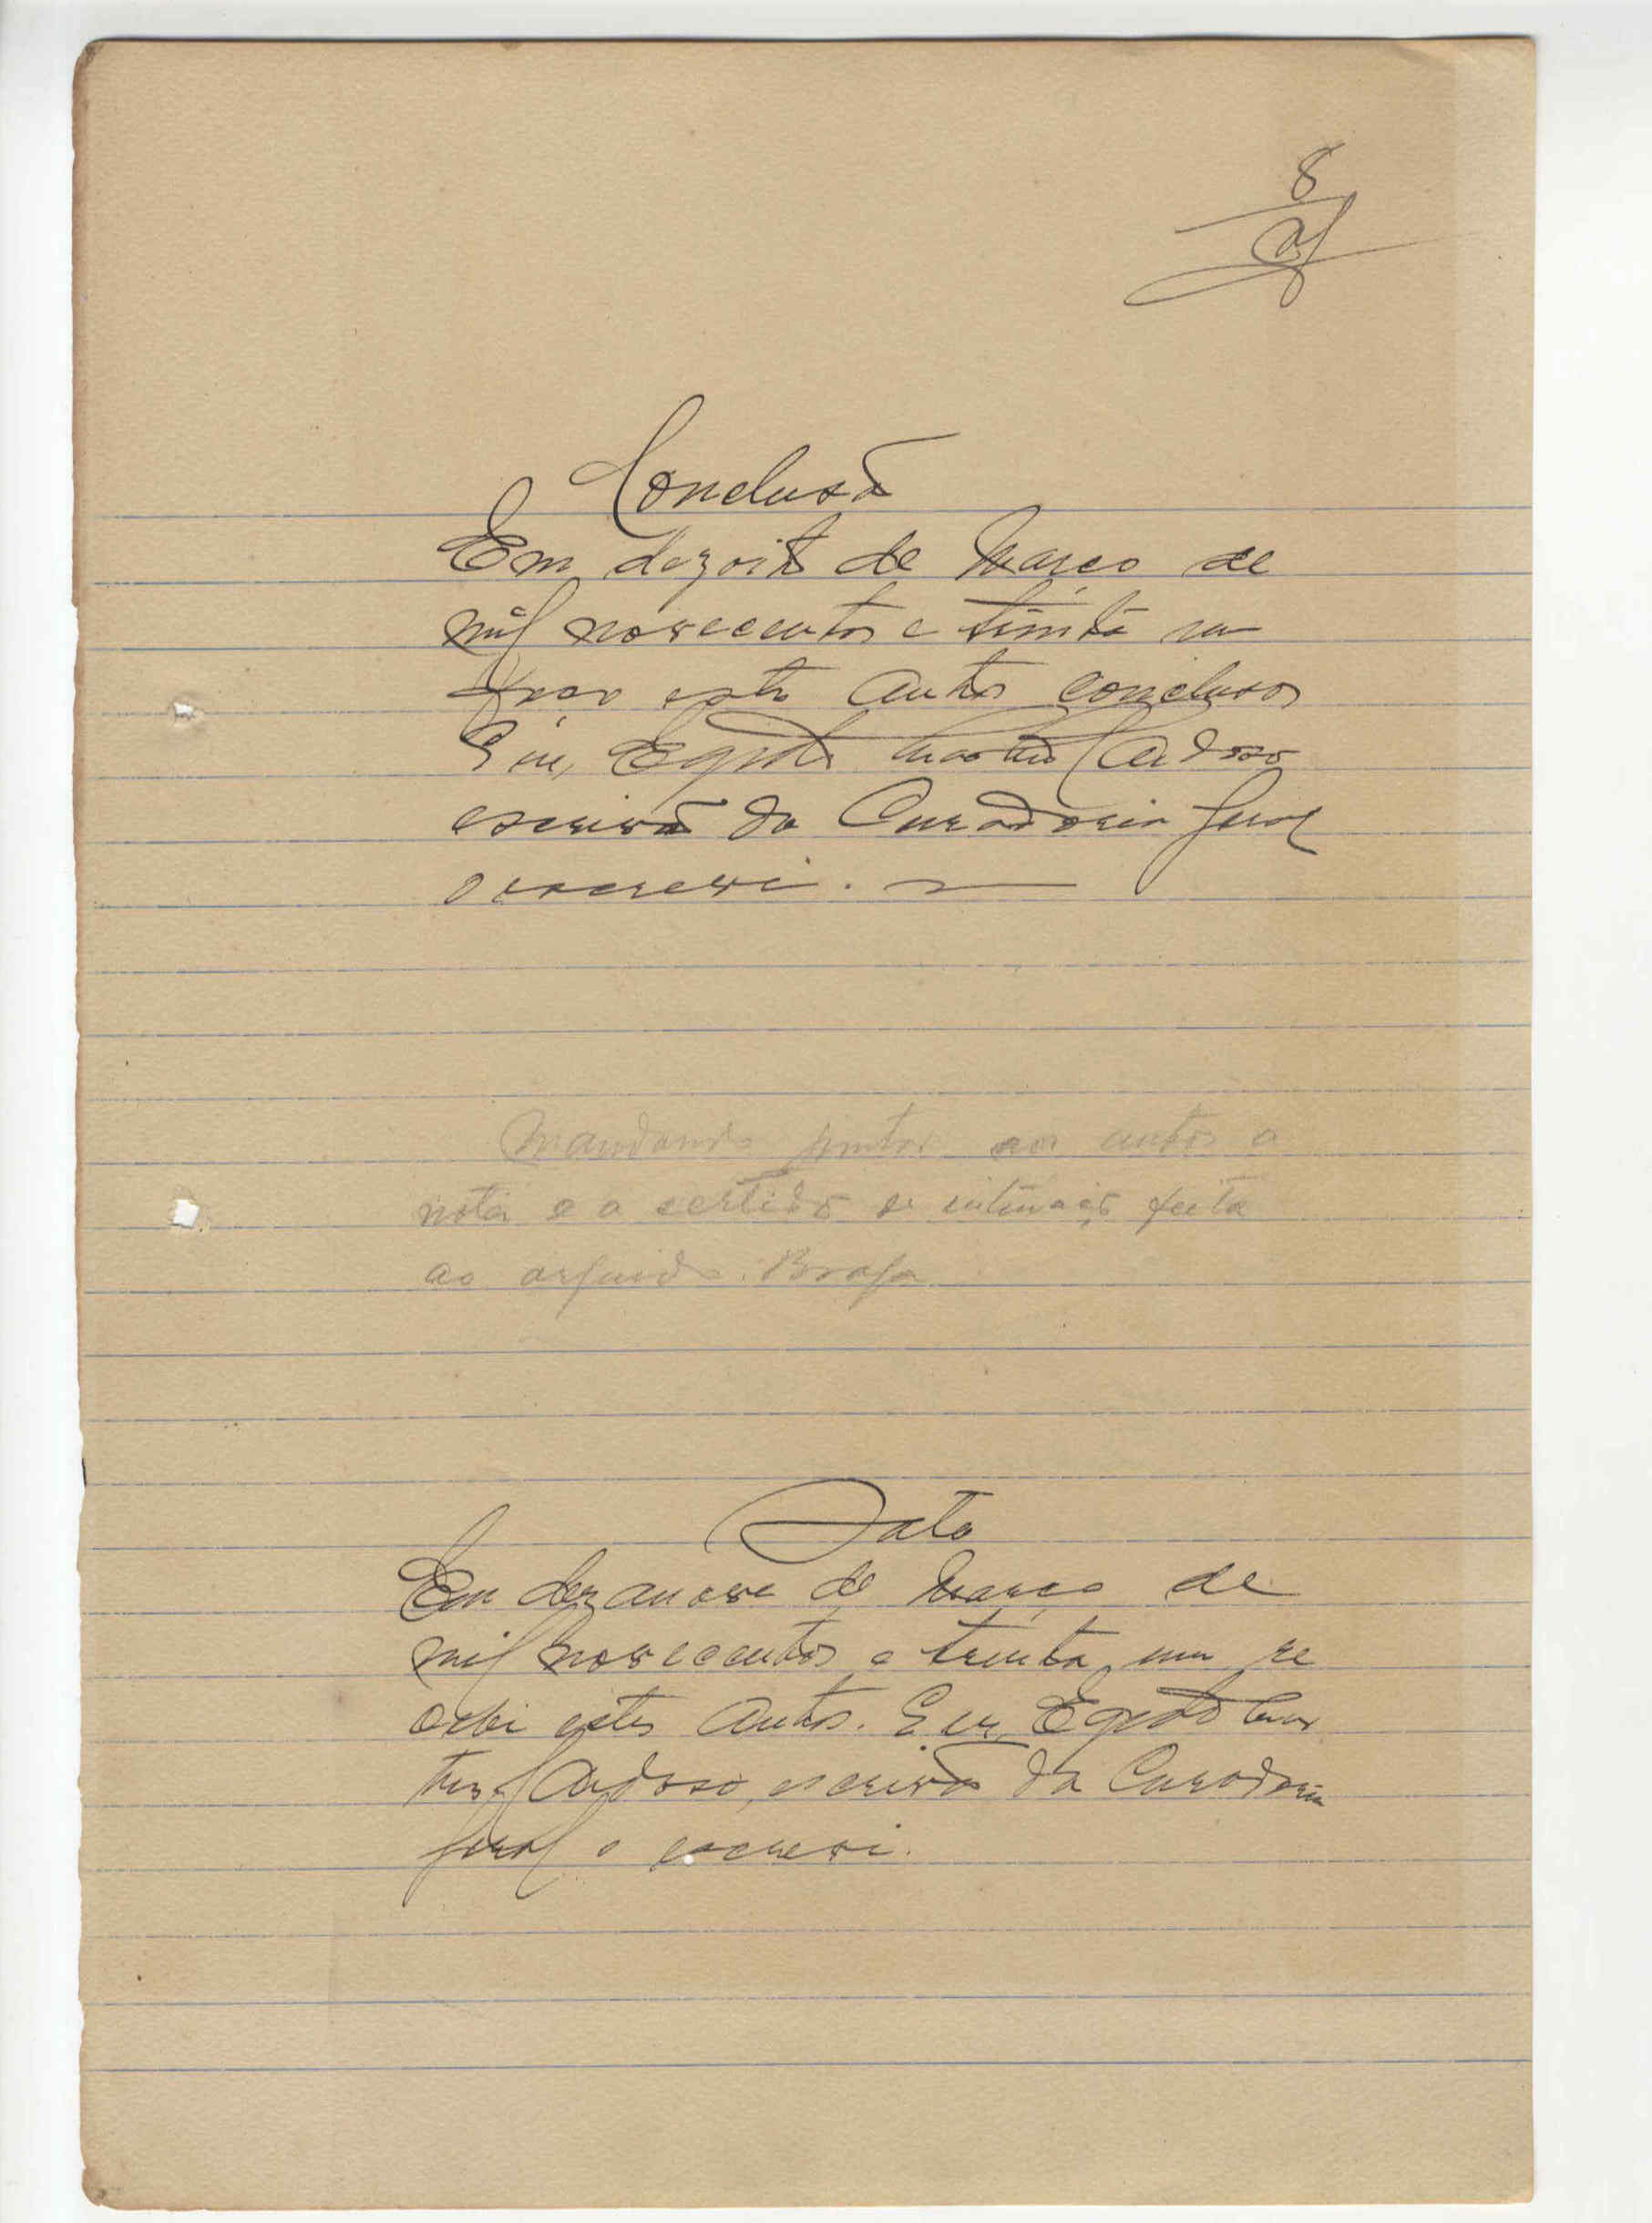 8
Conclusão
Em dezoito de Março de
mil novecentos e trinta um
faço estes autos conclusos
Eu, Egidio Martins Cardoso
escrivão da Curadoria Geral
o escrevi.
Mandando juntar aos autos a
nota e a certidão de intimação feita
ao arguido Braga
Data
Em dezanove de Março de
mil novecentos e trinta um re
cebi estes autos. Eu, Egidio Mar
tins Cardoso, escrivão da Curadoria
Geral o escrevi.